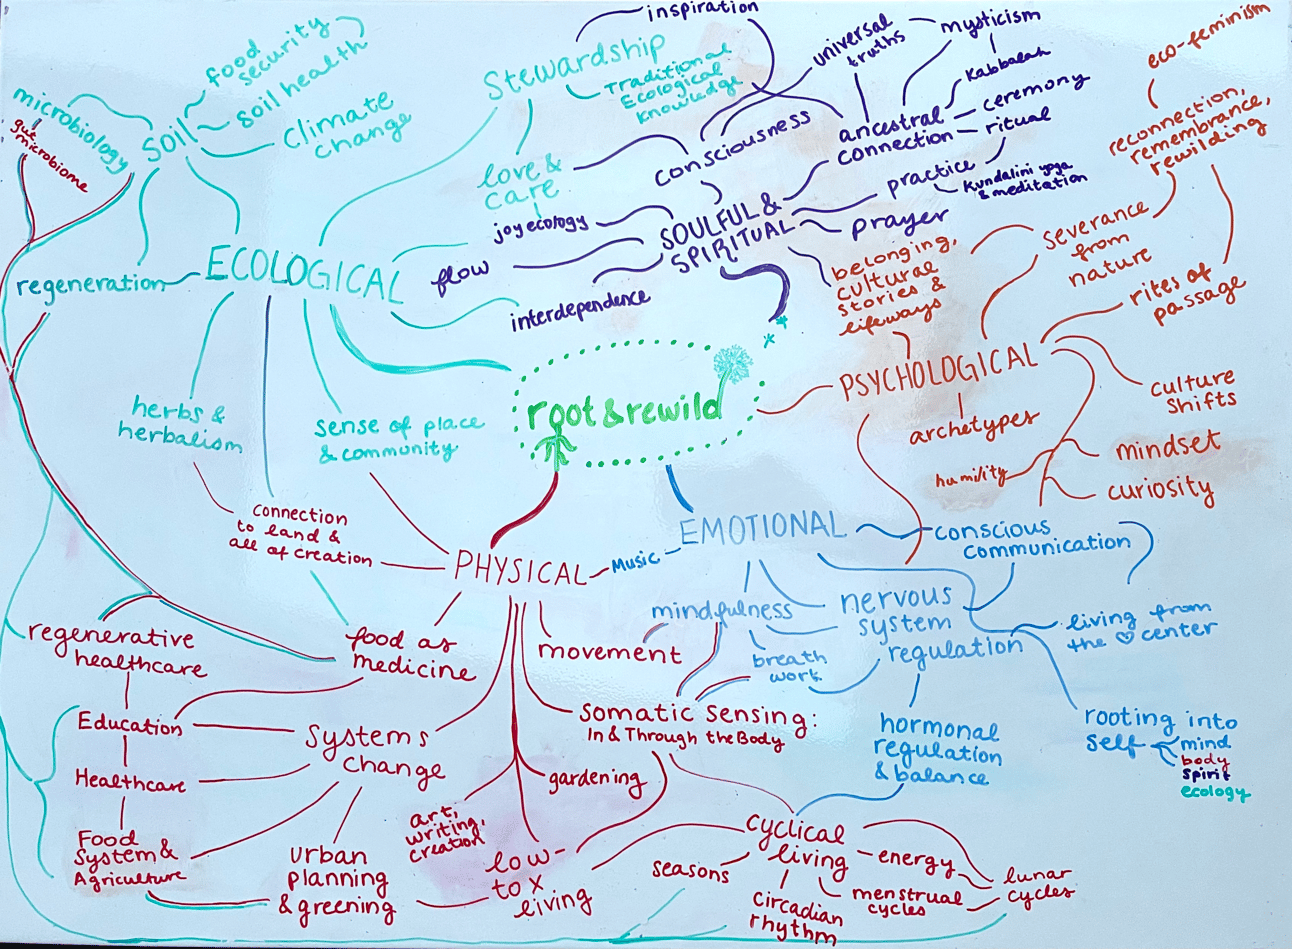 inspiration
Stewardship
Traditional
Ecological
Knowledge
food
security
soil health
microbiology
gut
microbiome
SOIL
Climate
change
universal
truths
mysticism
Kabbalah
ceremony
ritual
ancestral
connection
consciousness
practice
Kundalini yoga
& meditation
prayer
love &
care
joy ecology
SOULFUL &
SPIRITUAL
flow
interdependence
eco-feminism
reconnection,
remembrance,
rewilding
severance
from
nature
rites of
passage
belonging,
cultural
stories &
lifeways
ECOLOGICAL
regeneration
herbs &
herbalism
sense of place
& community
root & rewild
PSYCHOLOGICAL
culture
shifts
archetypes
mindset
humility
curiosity
connection
to land &
all of creation
PHYSICAL
Music
EMOTIONAL
conscious
communication
mindfulness
nervous
system
regulation
living from
the ♡ center
breath
work
hormonal
regulation
& balance
rooting into
self
mind
body
spirit
ecology
regenerative
healthcare
food as
medicine
movement
Somatic Sensing:
In & Through the Body
Education
Healthcare
Food
System &
Agriculture
Systems
change
gardening
art,
writing,
creation
urban
planning
& greening
low-
tox
living
cyclical
living
seasons
energy
circadian
rhythm
menstrual
cycles
lunar
cycles